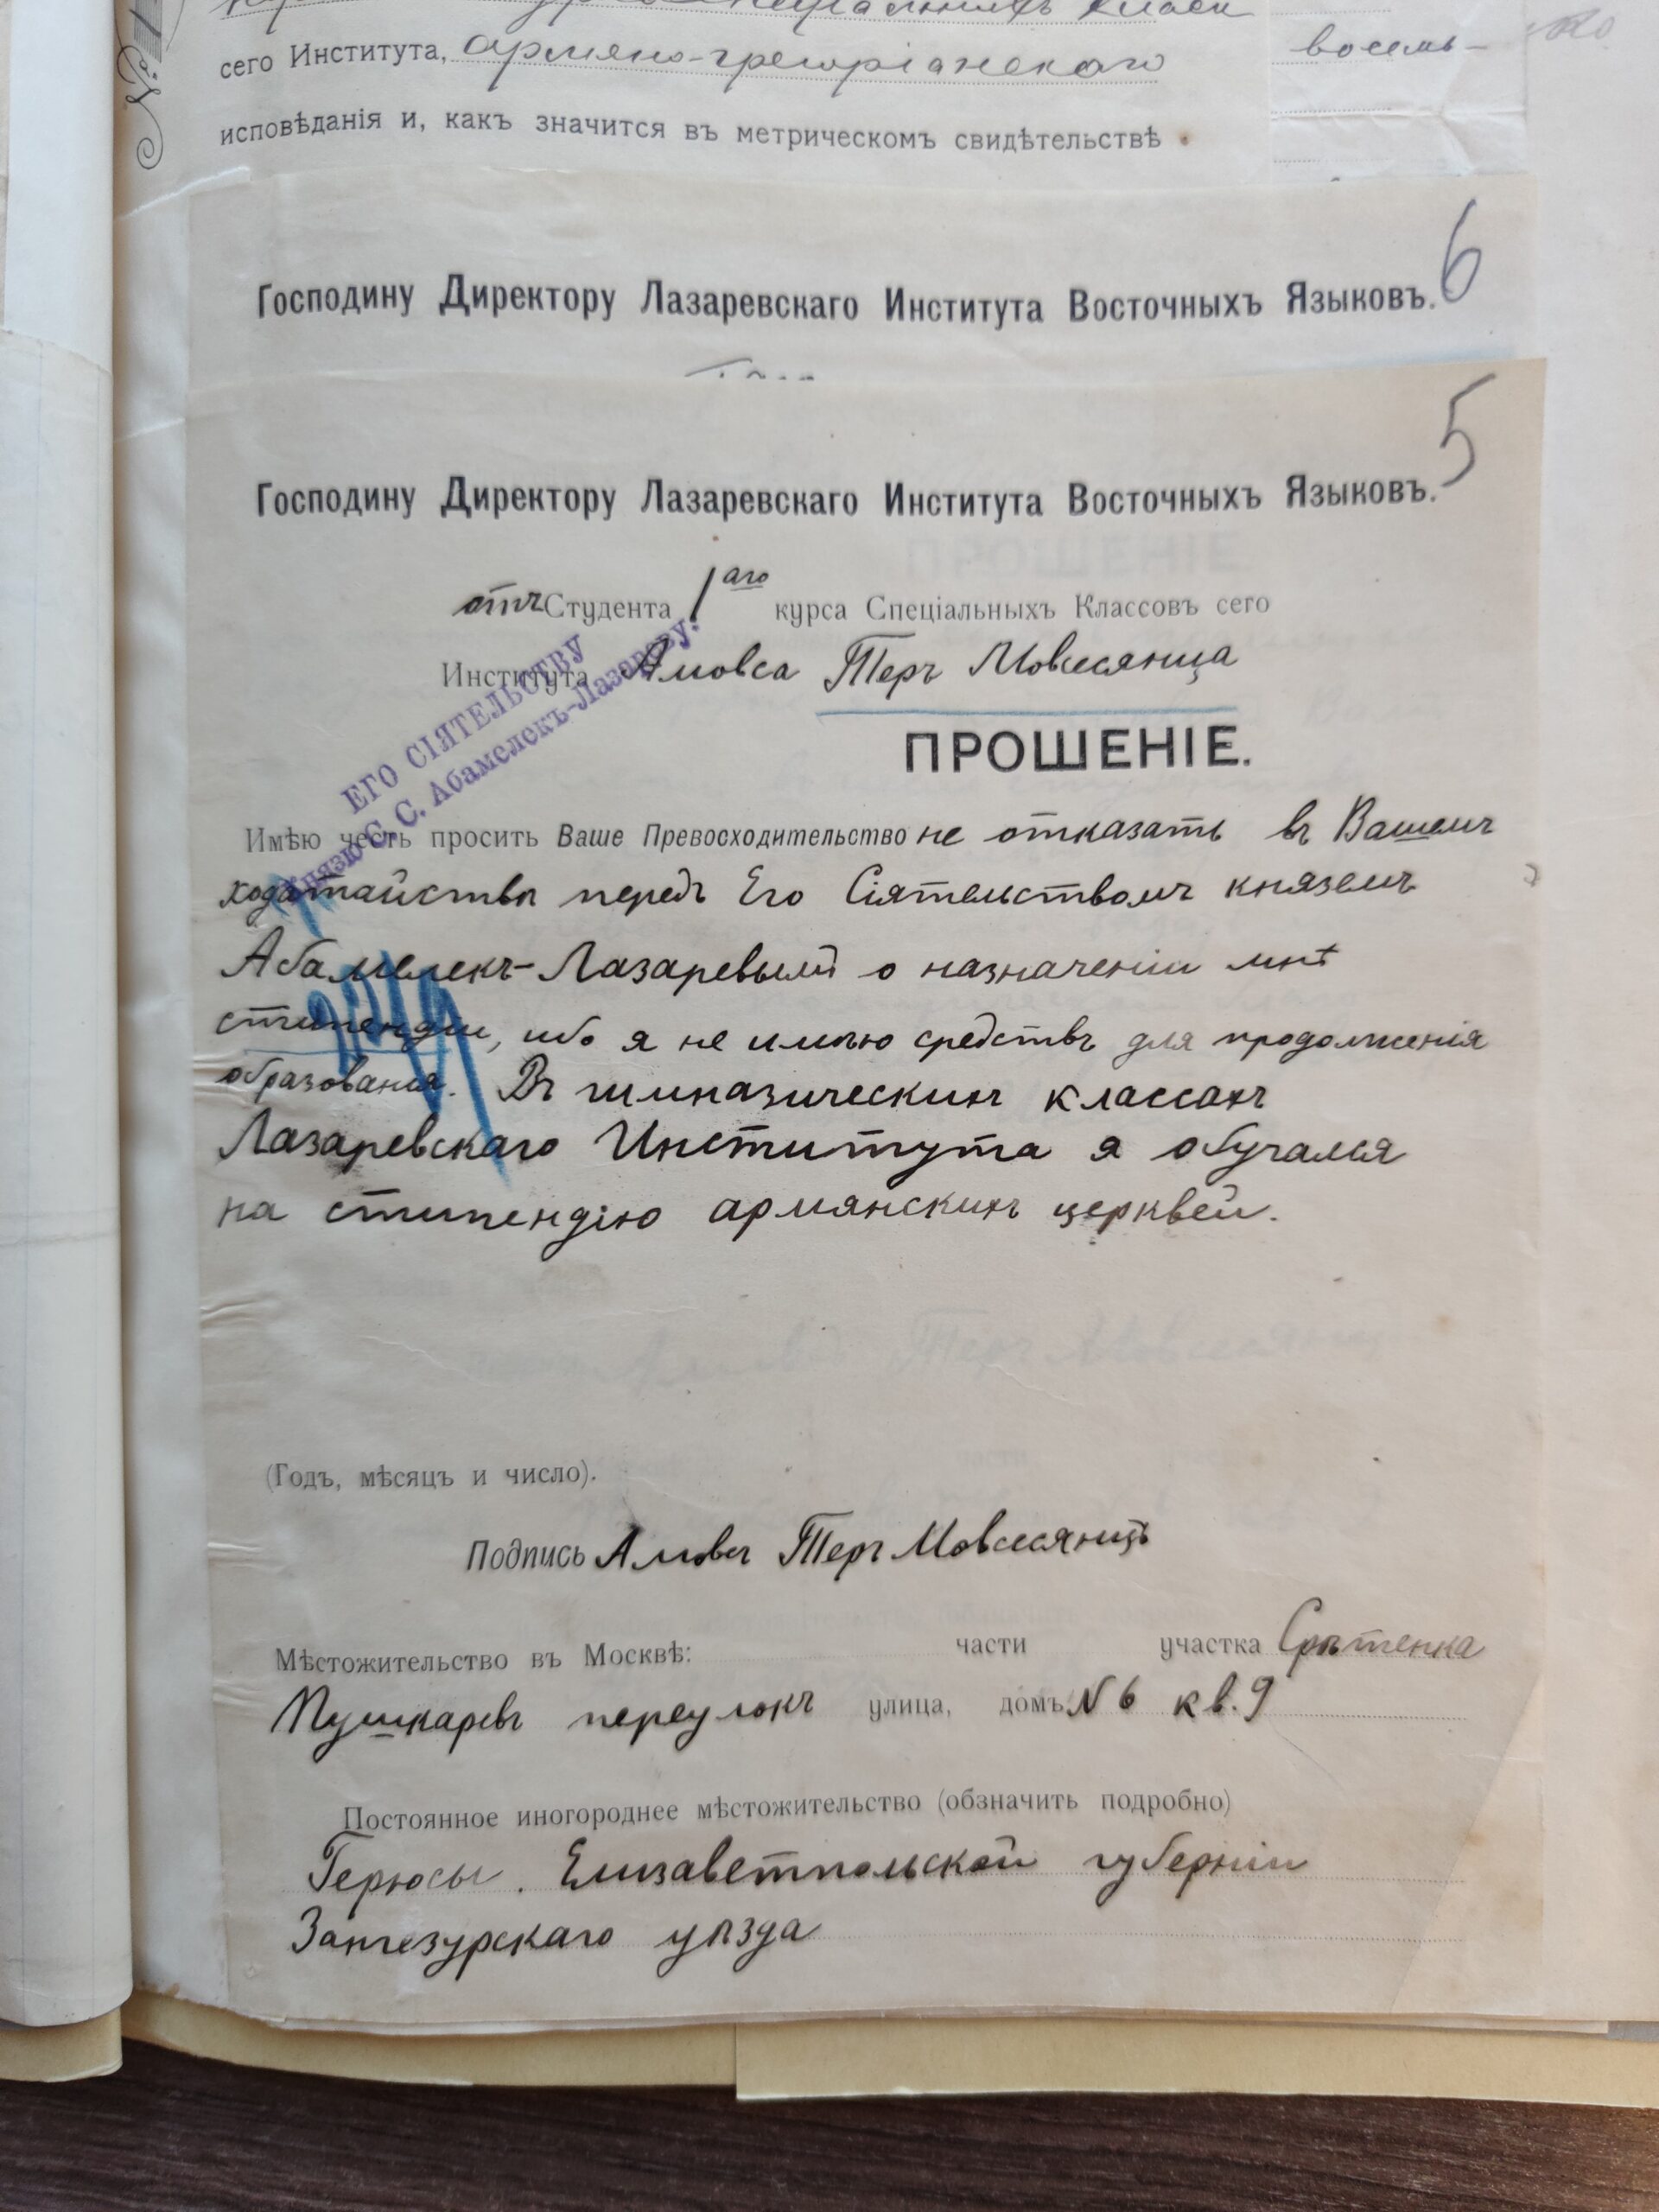 сего Института, армяно-грегоріанскаго
восемь-
исповѣданія и, какъ значится въ метрическомъ свидѣтельствѣ
6
Господину Директору Лазаревскаго Института Восточныхъ Языковъ.
5
Господину Директору Лазаревскаго Института Восточныхъ Языковъ.
отъ Студента 1аго курса Спеціальныхъ Классовъ сего
Института Амовса Теръ Мовсесянца
ЕГО СІЯТЕЛЬСТВУ
Князю С. С. Абамелекъ-Лазареву.
ПРОШЕНІЕ.
Имѣю честь просить Ваше Превосходительство не отказать въ Вашемъ
ходатайствѣ передъ Его Сіятельствомъ княземъ
Абамелекъ-Лазаревымъ о назначеніи мнѣ
стипендіи, ибо я не имѣю средствъ для продолженія
образованія. Въ гимназическихъ классахъ
Лазаревскаго Института я обучался
на стипендію армянскихъ церквей.
(Годъ, мѣсяцъ и число).
Подпись Амовсъ Теръ Мовсесянцъ
Мѣстожительство въ Москвѣ: части участка Срѣтенка
Пушкаревъ переулокъ улица, домъ N 6 кв. 9
Постоянное иногороднее мѣстожительство (обзначить подробно)
Герюсы. Елизаветпольской губерніи
Зангезурскаго уѣзда